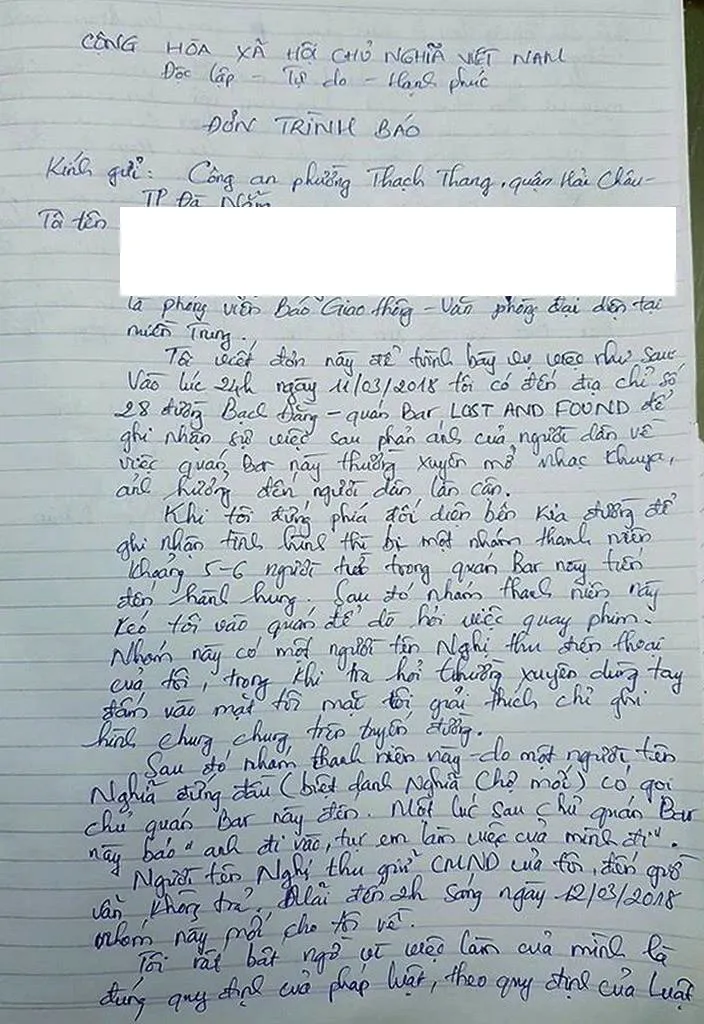 CỘNG HÒA XÃ HỘI CHỦ NGHĨA VIỆT NAM
Độc lập - Tự do - Hạnh phúc
ĐƠN TRÌNH BÁO
Kính gửi: Công an phường Thạch Thang, quận Hải Châu -
TP Đà Nẵng
Tôi tên
là phóng viên Báo Giao thông - Văn phòng đại diện tại
miền Trung.
Tôi viết đơn này để trình bày vụ việc như sau:
Vào lúc 24h ngày 11/03/2018 tôi có đến địa chỉ số
28 đường Bạch Đằng - quán Bar LOST AND FOUND để
ghi nhận sự việc sau phản ánh của người dân về
việc quán Bar này thường xuyên mở nhạc khuya,
ảnh hưởng đến người dân lân cận.
Khi tôi đứng phía đối diện bên kia đường để
ghi nhận tình hình thì bị một nhóm thanh niên
khoảng 5-6 người từ trong quán Bar này tiến
đến hành hung. Sau đó nhóm thanh niên này
kéo tôi vào quán để dò hỏi việc quay phim.
Nhóm này có một người tên Nghị thu điện thoại
của tôi, trong khi tra hỏi thường xuyên dùng tay
đấm vào mặt tôi mặc tôi giải thích chỉ ghi
hình chung chung trên tuyến đường.
Sau đó nhóm thanh niên này - do một người tên
Nghĩa đứng đầu (biệt danh Nghĩa Chợ mới) có gọi
chủ quán Bar này đến. Một lúc sau chủ quán Bar
này bảo "anh đi vào, tụi em làm việc của mình đi".
Người tên Nghị thu giữ CMND của tôi, đến giờ
vẫn không trả. Mãi đến 2h sáng ngày 12/03/2018
nhóm này mới cho tôi về.
Tôi rất bất ngờ vì việc làm của mình là
đúng quy định của pháp luật, theo quy định của Luật